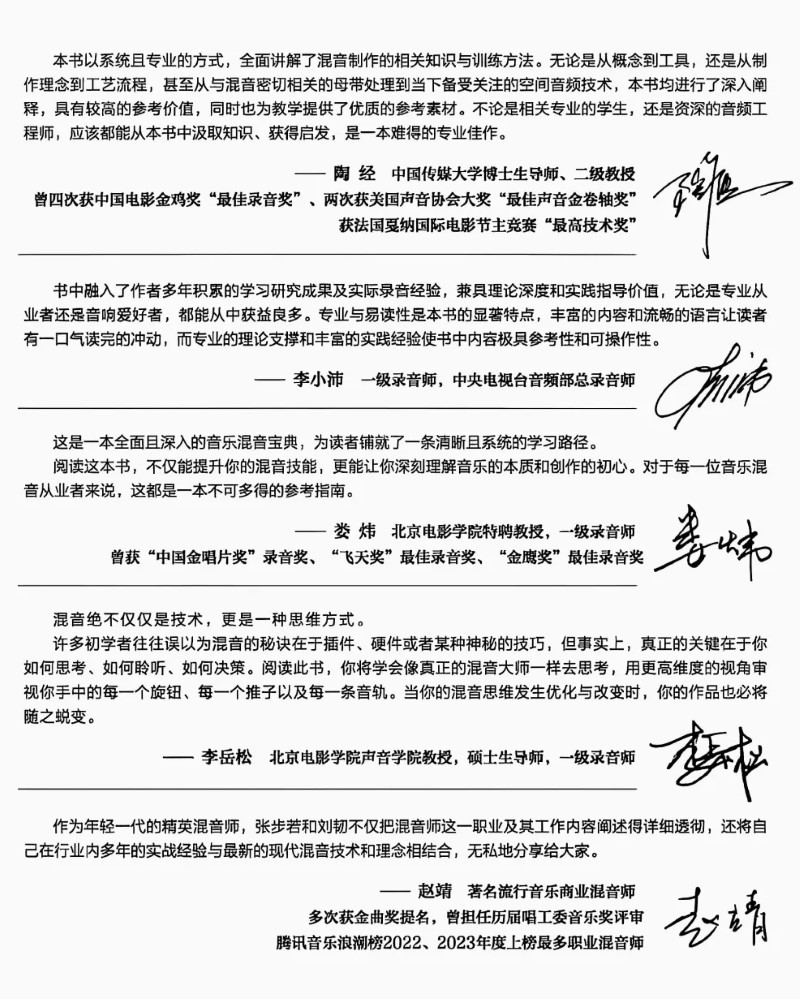 本书以系统且专业的方式，全面讲解了混音制作的相关知识与训练方法。无论是从概念到工具，还是从制
作理念到工艺流程，甚至从与混音密切相关的母带处理到当下备受关注的空间音频技术，本书均进行了深入阐
释，具有较高的参考价值，同时也为教学提供了优质的参考素材。不论是相关专业的学生，还是资深的音频工
程师，应该都能从本书中汲取知识、获得启发，是一本难得的专业佳作。
—— 陶 经 中国传媒大学博士生导师、二级教授
曾四次获中国电影金鸡奖“最佳录音奖”、两次获美国声音协会大奖“最佳声音金卷轴奖”
获法国戛纳国际电影节主竞赛“最高技术奖”
书中融入了作者多年积累的学习研究成果及实际录音经验，兼具理论深度和实践指导价值，无论是专业从
业者还是音响爱好者，都能从中获益良多。专业与易读性是本书的显著特点，丰富的内容和流畅的语言让读者
有一口气读完的冲动，而专业的理论支撑和丰富的实践经验使书中内容极具参考性和可操作性。
—— 李小沛 一级录音师，中央电视台音频部总录音师
这是一本全面且深入的音乐混音宝典，为读者铺就了一条清晰且系统的学习路径。
阅读这本书，不仅能提升你的混音技能，更能让你深刻理解音乐的本质和创作的初心。对于每一位音乐混
音从业者来说，这都是一本不可多得的参考指南。
—— 娄 炜 北京电影学院特聘教授，一级录音师
娄炜
曾获“中国金唱片奖”录音奖、“飞天奖”最佳录音奖、“金鹰奖”最佳录音奖
混音绝不仅仅是技术，更是一种思维方式。
许多初学者往往误以为混音的秘诀在于插件、硬件或者某种神秘的技巧，但事实上，真正的关键在于你
如何思考、如何聆听、如何决策。阅读此书，你将学会像真正的混音大师一样去思考，用更高维度的视角审
视你手中的每一个旋钮、每一个推子以及每一条音轨。当你的混音思维发生优化与改变时，你的作品也必将
随之蜕变。
—— 李岳松 北京电影学院声音学院教授，硕士生导师，一级录音师
李岳松
作为年轻一代的精英混音师，张步若和刘韧不仅把混音师这一职业及其工作内容阐述得详细透彻，还将自
己在行业内多年的实战经验与最新的现代混音技术和理念相结合，无私地分享给大家。
—— 赵靖 著名流行音乐商业混音师
多次获金曲奖提名，曾担任历届唱工委音乐奖评审
赵靖
腾讯音乐浪潮榜2022、2023年度上榜最多职业混音师